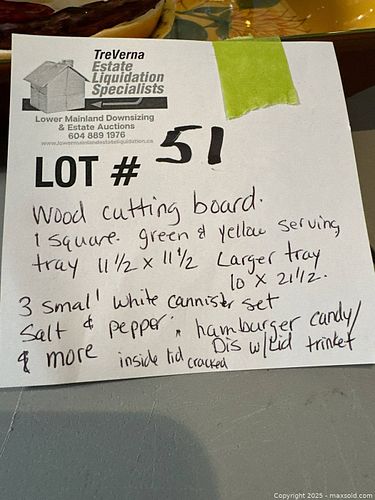 TreVerna
Estate
Liquidation
Specialists
Lower Mainland Downsizing
& Estate Auctions
604 889 1976
www.lowermainlandestateliquidation.ca
LOT # 51
Wood cutting board.
1 square green & yellow serving
tray 11 1/2 x 11 1/2 Larger tray
10 x 21 1/2.
3 small white cannister set
Salt & pepper, hamburger candy/
Dis w/Lid trinket
& more inside lid cracked
Copyright 2025 - maxsold.com